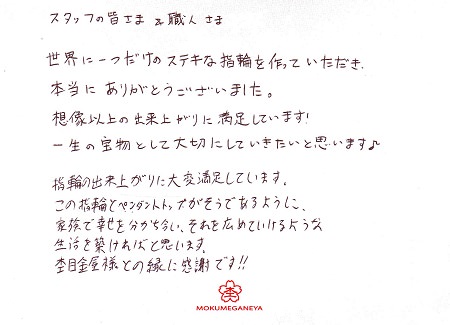 スタッフの皆さま & 職人さま
世界に一つだけのステキな指輪を作っていただき、
本当にありがとうございました。
想像以上の出来上がりに満足しています!
一生の宝物として大切にしていきたいと思います♪
指輪の出来上がりに大変満足しています。
この指輪とペンダントトップがそうであるように、
家族で幸せを分かち合い、それを広めていけるような
生活を築ければと思います。
杢目金屋様との縁に感謝です!!
MOKUMEGANEYA